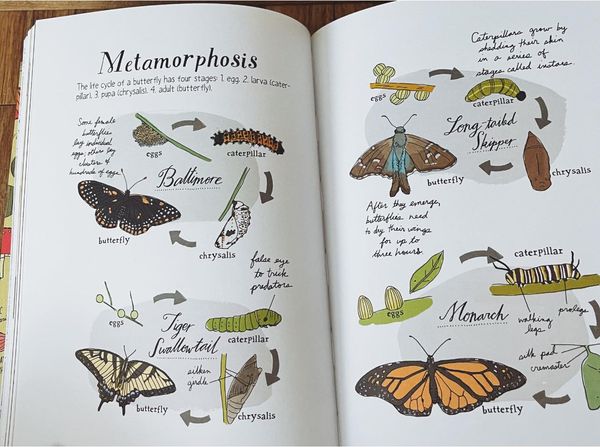 Metamorphosis
The life cycle of a butterfly has four stages: 1. egg. 2. larva (cater-
pillar), 3. pupa (chrysalis). 4. adult (butterfly).
Some female
butterflies
lay individual
eggs, others lay
clusters of
hundreds of eggs.
eggs
caterpillar
Baltimore
butterfly
chrysalis
false eye
to trick
predators
eggs
caterpillar
Tiger
Swallowtail
silken
girdle
butterfly
chrysalis
Caterpillars grow by
shedding their skin
in a series of
stages called instars.
eggs
caterpillar
Long-tailed
Skipper
butterfly
chrysalis
After they emerge,
butterflies need
to dry their wings
for up to
three hours.
caterpillar
eggs
Monarch
walking
legs
prolegs
silk pad
cremaster
butterfly